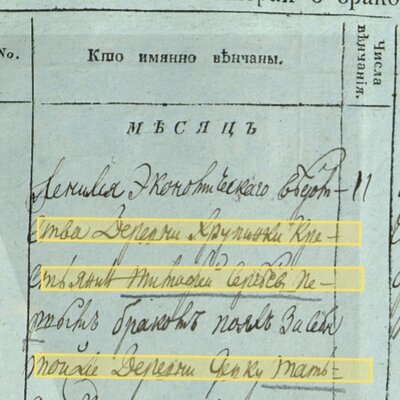 No.
Кто имянно вѣнчаны.
Числа вѣнчанія.
МѢСЯЦЪ
Женился Экономическаго вѣдом- 11
ства Деревни Крупинки Кре-
стьянинъ Тимофей Сергѣев Пе-
рвымъ бракомъ понялъ За себя
тойже Деревни Девку Тать-